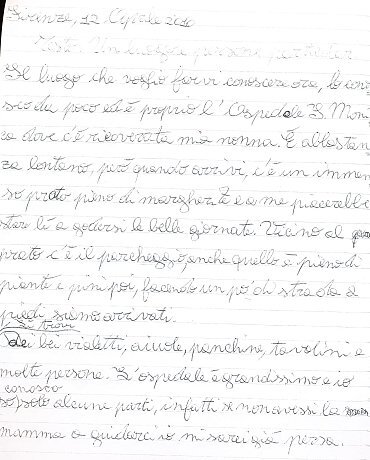 12 Aprile 2010
Testo: Un luogo e persone particolari
Il luogo che voglio farvi conoscere ora, lo cono
sco da poco ed è proprio l'Ospedale S. Moni
ca dove c'è ricoverata mia nonna. È abbastan
za lontano, però quando arrivi, c'è un immen
so prato pieno di margherite e a me piacerebbe
stare lì a godersi le belle giornate. Vicino al
prato c'è il parcheggio, anche quello è pieno di
piante e pini poi, facendo un po' di strada a
piedi siamo arrivati.
Si trova
Dei bei vialetti, aiuole, panchine, tavolini e
molte persone. L'ospedale è grandissimo e io
conosco
solo alcune parti, infatti se non avessi la
mamma a guidarci io mi sarei già persa.